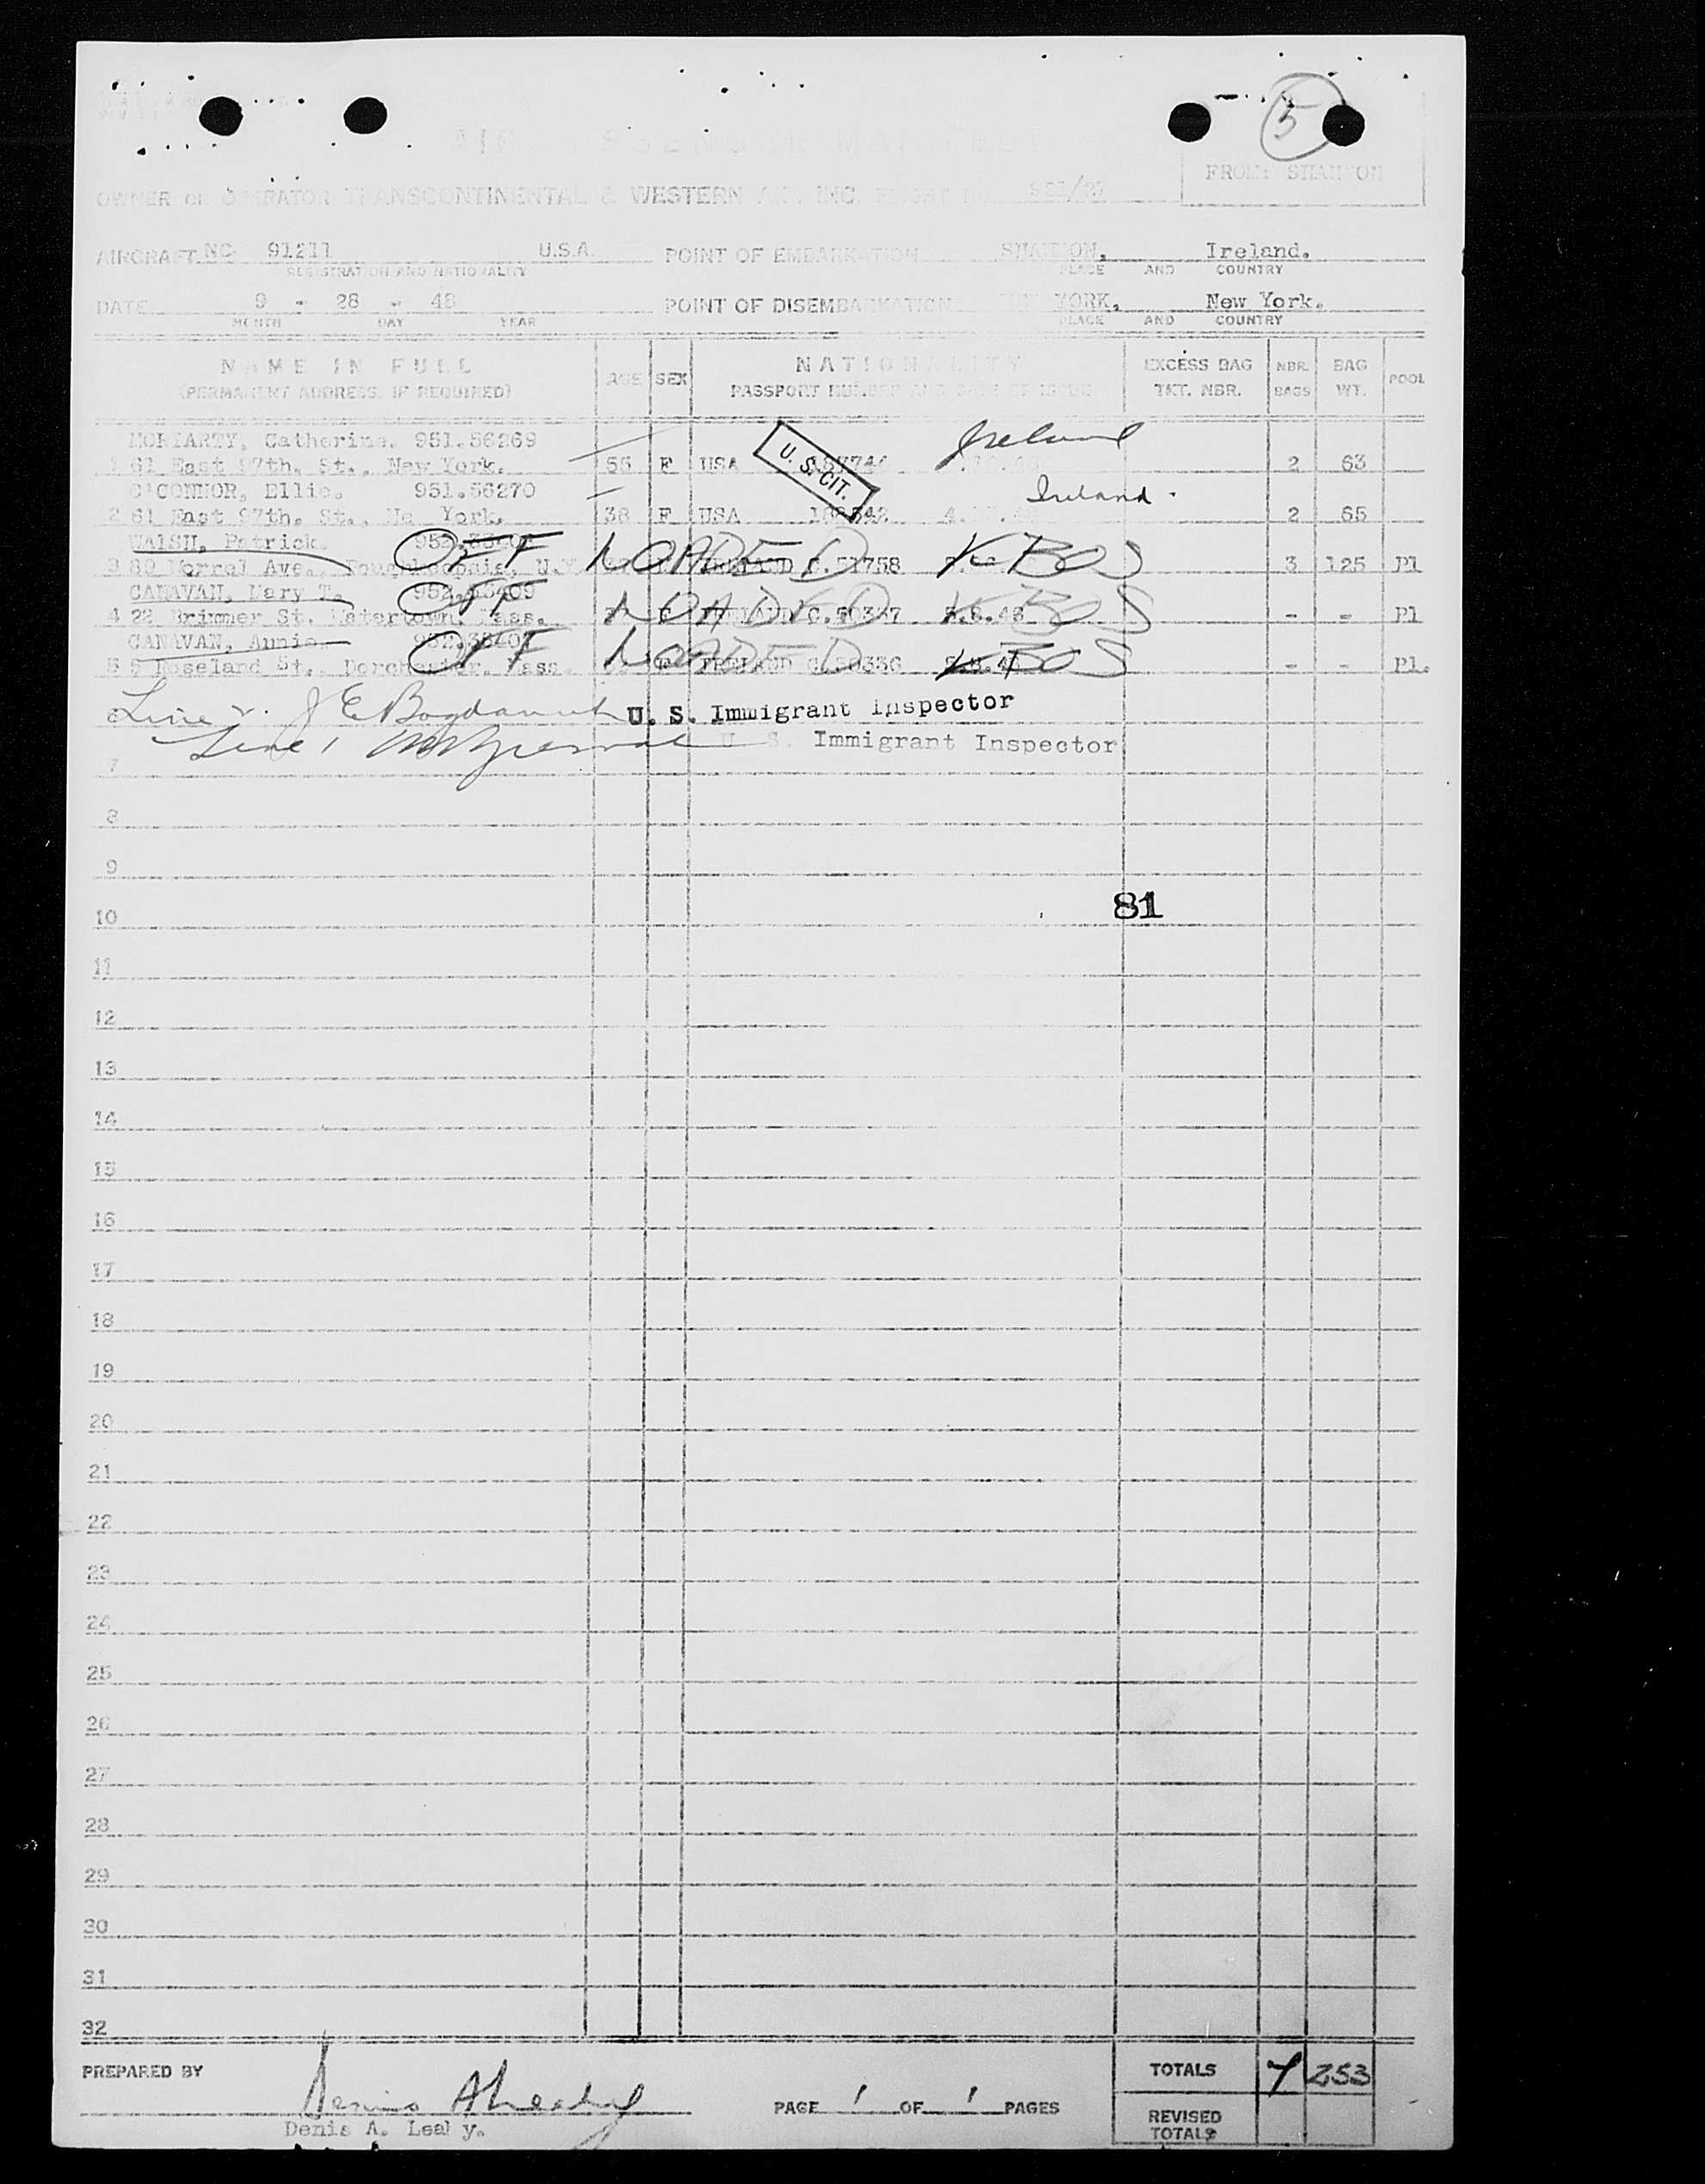 5
AIR PASSENGER MANIFEST
FROM: SHANNON
OWNER OR OPERATOR TRANSCONTINENTAL & WESTERN AIR, INC. FLIGHT NO.
AIRCRAFT NC 91211 U.S.A. POINT OF EMBARKATION SHANNON, Ireland.
REGISTRATION AND NATIONALITY PLACE AND COUNTRY
DATE 9 - 28 - 48 POINT OF DISEMBARKATION NEW YORK, New York.
MONTH DAY YEAR PLACE AND COUNTRY
NAME IN FULL AGE SEX NATIONALITY EXCESS BAG NBR. BAG POOL
(PERMANENT ADDRESS, IF REQUIRED) PASSPORT NUMBER AND DATE OF ISSUE TKT. NBR. BAGS WT.
MORIARTY, Catherine. 951.56269 Ireland
1 61 East 97th. St., New York. 56 F USA U. S. CIT. 2 63
O'CONNOR, Ellie. 951.56270 Ireland.
2 61 East 97th. St., Ne York. 38 F USA 2 65
WALSH, Patrick. OFF LOADED BOS
3 89 Ave., Poughkeepsie, N.Y. IRELAND C.51758 3 125 Pl
CANAVAN, Mary T. 952.33409 OFF LOADED BOS
4 22 Brimmer St. Watertown. Mass. F IRELAND 5.8.48 - - Pl
CANAVAN, Annie OFF LOADED BOS
5 5 Roseland St., Dorchester. Mass. F IRELAND C.50336 - - Pl.
6 Line 2. J E Bogdanvich U. S. Immigrant Inspector
Line 1 U. S. Immigrant Inspector
7
8
9
81
10
11
12
13
14
15
16
17
18
19
20
21
22
23
24
25
26
27
28
29
30
31
32
PREPARED BY TOTALS 7 253
Denis A Leahy PAGE 1 OF 1 PAGES
Denis A. Leahy. REVISED TOTALS